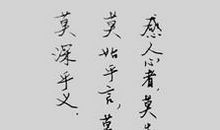 感人心者，莫先
莫始乎言，莫
莫深乎义．